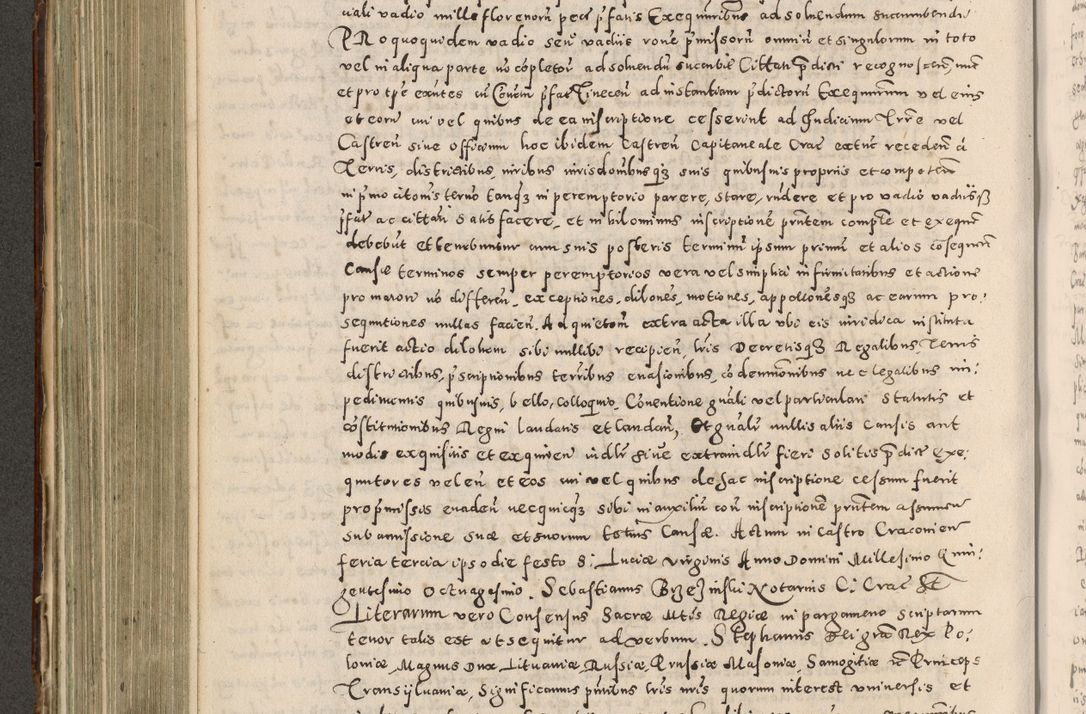 uali vadio mille florenorum pecu pfatis Exequutoribus ad soluendum succumbendi
PRo quoquidem vadio seu vadiis rone pmissoru omniu et singulorum in toto
vel in aliqua parte no copletoru ad soluendu sucubit Cittati pdicti recognoscen,
et pro tpe exntes cu Conuen pfat Tinecen ad instantiam pdictoru Exequutorum vel eius
et eoru cui vel quibus de ea inscriptione cesserint ad Judicium Trre vel
Castren siue officium hoc ibidem Castren Capitaneale Crac extuc receden a
Terris, districtibus, iuribus iurisdonibusqz suis quibusuis propriis et competen
in pmo citonis termo tanqz in peremptorio parere, stare, rndere et pro vadio vadiisqz
pfat ac cittati satisfacere, et nihilominus inscriptione pntem complre et exequi
debebut et tenebuntur cum suis posteris terminu ipsum primu et alios cosequen
Causae terminos semper peremptorios vera vel simplici infirmitatibus et actione
pro maiori no differen, exceptiones, dilones, motiones, appellonesqz ac earum pro:
sequutiones nullas facien. Ad quietoni extra acta illa vbi eis iuridica instituta
fuerit actio dilonem sibi nullibi recipien, lris Decretisqz Regalibus, Terris
districtibus, pscriptionibus terribus euasionibus, codemnonibus ne e legalibus im:
pedimentis quibusuis, bello, colloquio, Conuentione gnali vel particulari Statutis et
costitutionibus Regni laudatis et laudan, Et gnali nullis aliis causis aut
modis exquisitis et exquiren iudlr siue extraiudlr fieri solitis pdict Exe:
quutores vel eu et eos cui vel quibus de hac inscriptione cessum fuerit
propmissis euaden necquicqz sibi in auxiliu con inscriptione pntem assumen
sub amissione suae et suorum totius Causae. Actum in Castro Cracouien
feria tercia ipso die festo S: Luciae virginis Anno Domini Millesimo Quin:
gentesimo Octuagesimo. Sebastianus Notarius C: Crac sst
Literarum vero Consensus Sacrae Mtis Regiae in pargameno scriptarum
tenor talis est vt sequitur ad verbum. Stephanus Dei gra Rex Po:
loniae Magnus Dux Lituaniae, Russiae, Prussiae Masouiae, Samogitiae etc Princeps
Transyluaniae, Significamus pntibus lris nris quorum interest vniuersis et